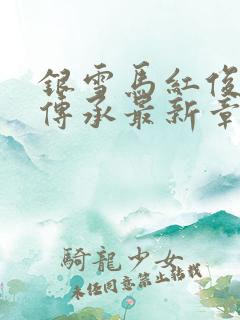 銀雪馬紅俊
傳承最新章
騎龍少女
未經同意禁止轉載